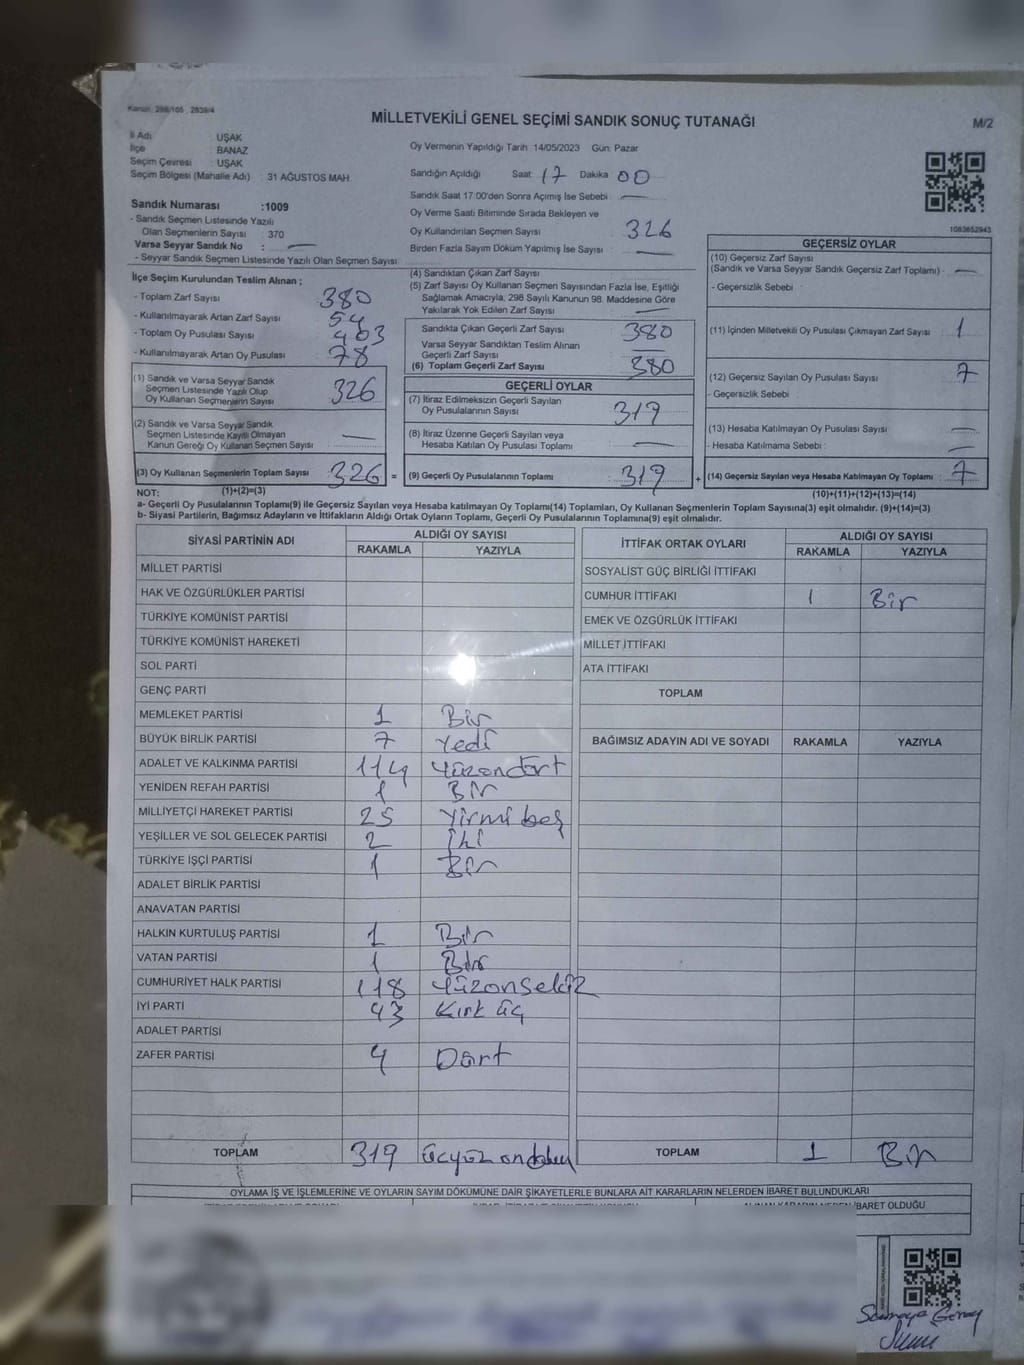 Kanun: 298/105 , 2839/4
MİLLETVEKİLİ GENEL SEÇİMİ SANDIK SONUÇ TUTANAĞI
M/2
İl Adı : UŞAK
İlçe : BANAZ
Seçim Çevresi : UŞAK
Seçim Bölgesi (Mahalle Adı) : 31 AĞUSTOS MAH.
Sandık Numarası :1009
- Sandık Seçmen Listesinde Yazılı
Olan Seçmenlerin Sayısı : 370
Varsa Seyyar Sandık No : —
- Seyyar Sandık Seçmen Listesinde Yazılı Olan Seçmen Sayısı:
Oy Vermenin Yapıldığı Tarih: 14/05/2023 Gün: Pazar
Sandığın Açıldığı Saat 17 Dakika 00
Sandık Saat 17:00'den Sonra Açılmış İse Sebebi : —
Oy Verme Saati Bitiminde Sırada Bekleyen ve
Oy Kullandırılan Seçmen Sayısı 326
Birden Fazla Sayım Döküm Yapılmış İse Sayısı : —
1083652943
İlçe Seçim Kurulundan Teslim Alınan ;
- Toplam Zarf Sayısı 380
- Kullanılmayarak Artan Zarf Sayısı 54
- Toplam Oy Pusulası Sayısı 403
- Kullanılmayarak Artan Oy Pusulası 78
(1) Sandık ve Varsa Seyyar Sandık
Seçmen Listesinde Yazılı Olup
Oy Kullanan Seçmenlerin Sayısı 326
(2) Sandık ve Varsa Seyyar Sandık
Seçmen Listesinde Kayıtlı Olmayan
Kanun Gereği Oy Kullanan Seçmen Sayısı —
(3) Oy Kullanan Seçmenlerin Toplam Sayısı 326 =
(1)+(2)=(3)
(4) Sandıktan Çıkan Zarf Sayısı
(5) Zarf Sayısı Oy Kullanan Seçmen Sayısından Fazla İse, Eşitliği
Sağlamak Amacıyla, 298 Sayılı Kanunun 98. Maddesine Göre
Yakılarak Yok Edilen Zarf Sayısı —
Sandıkta Çıkan Geçerli Zarf Sayısı 380
Varsa Seyyar Sandıktan Teslim Alınan
Geçerli Zarf Sayısı —
(6) Toplam Geçerli Zarf Sayısı 380
GEÇERLİ OYLAR
(7) İtiraz Edilmeksizin Geçerli Sayılan
Oy Pusulalarının Sayısı 319
(8) İtiraz Üzerine Geçerli Sayılan veya
Hesaba Katılan Oy Pusulası Toplamı —
(9) Geçerli Oy Pusulalarının Toplamı 319 +
GEÇERSİZ OYLAR
(10) Geçersiz Zarf Sayısı
(Sandık ve Varsa Seyyar Sandık Geçersiz Zarf Toplamı) - —
- Geçersizlik Sebebi :
(11) İçinden Milletvekili Oy Pusulası Çıkmayan Zarf Sayısı 1
(12) Geçersiz Sayılan Oy Pusulası Sayısı 7
- Geçersizlik Sebebi :
(13) Hesaba Katılmayan Oy Pusulası Sayısı —
- Hesaba Katılmama Sebebi : —
(14) Geçersiz Sayılan veya Hesaba Katılmayan Oy Toplamı 7
(10)+(11)+(12)+(13)=(14)
NOT:
a- Geçerli Oy Pusulalarının Toplamı(9) ile Geçersiz Sayılan veya Hesaba katılmayan Oy Toplamı(14) Toplamları, Oy Kullanan Seçmenlerin Toplam Sayısına(3) eşit olmalıdır. (9)+(14)=(3)
b- Siyasi Partilerin, Bağımsız Adayların ve İttifakların Aldığı Ortak Oyların Toplamı, Geçerli Oy Pusulalarının Toplamına(9) eşit olmalıdır.
SİYASİ PARTİNİN ADI ALDIĞI OY SAYISI
RAKAMLA YAZIYLA
MİLLET PARTİSİ
HAK VE ÖZGÜRLÜKLER PARTİSİ
TÜRKİYE KOMÜNİST PARTİSİ
TÜRKİYE KOMÜNİST HAREKETİ
SOL PARTİ
GENÇ PARTİ
MEMLEKET PARTİSİ 1 Bir
BÜYÜK BİRLİK PARTİSİ 7 Yedi
ADALET VE KALKINMA PARTİSİ 114 Yüzondört
YENİDEN REFAH PARTİSİ 1 Bir
MİLLİYETÇİ HAREKET PARTİSİ 25 Yirmi beş
YEŞİLLER VE SOL GELECEK PARTİSİ 2 İki
TÜRKİYE İŞÇİ PARTİSİ 1 Bir
ADALET BİRLİK PARTİSİ
ANAVATAN PARTİSİ
HALKIN KURTULUŞ PARTİSİ 1 Bir
VATAN PARTİSİ 1 Bir
CUMHURİYET HALK PARTİSİ 118 Yüzonsekiz
İYİ PARTİ 43 Kırk üç
ADALET PARTİSİ
ZAFER PARTİSİ 4 Dört
TOPLAM 319 Üçyüz ondokuz
İTTİFAK ORTAK OYLARI ALDIĞI OY SAYISI
RAKAMLA YAZIYLA
SOSYALİST GÜÇ BİRLİĞİ İTTİFAKI
CUMHUR İTTİFAKI 1 Bir
EMEK VE ÖZGÜRLÜK İTTİFAKI
MİLLET İTTİFAKI
ATA İTTİFAKI
TOPLAM
BAĞIMSIZ ADAYIN ADI VE SOYADI RAKAMLA YAZIYLA
TOPLAM 1 Bir
OYLAMA İŞ VE İŞLEMLERİNE VE OYLARIN SAYIM DÖKÜMÜNE DAİR ŞİKAYETLERLE BUNLARA AİT KARARLARIN NELERDEN İBARET BULUNDUKLARI
İBARET OLDUĞU